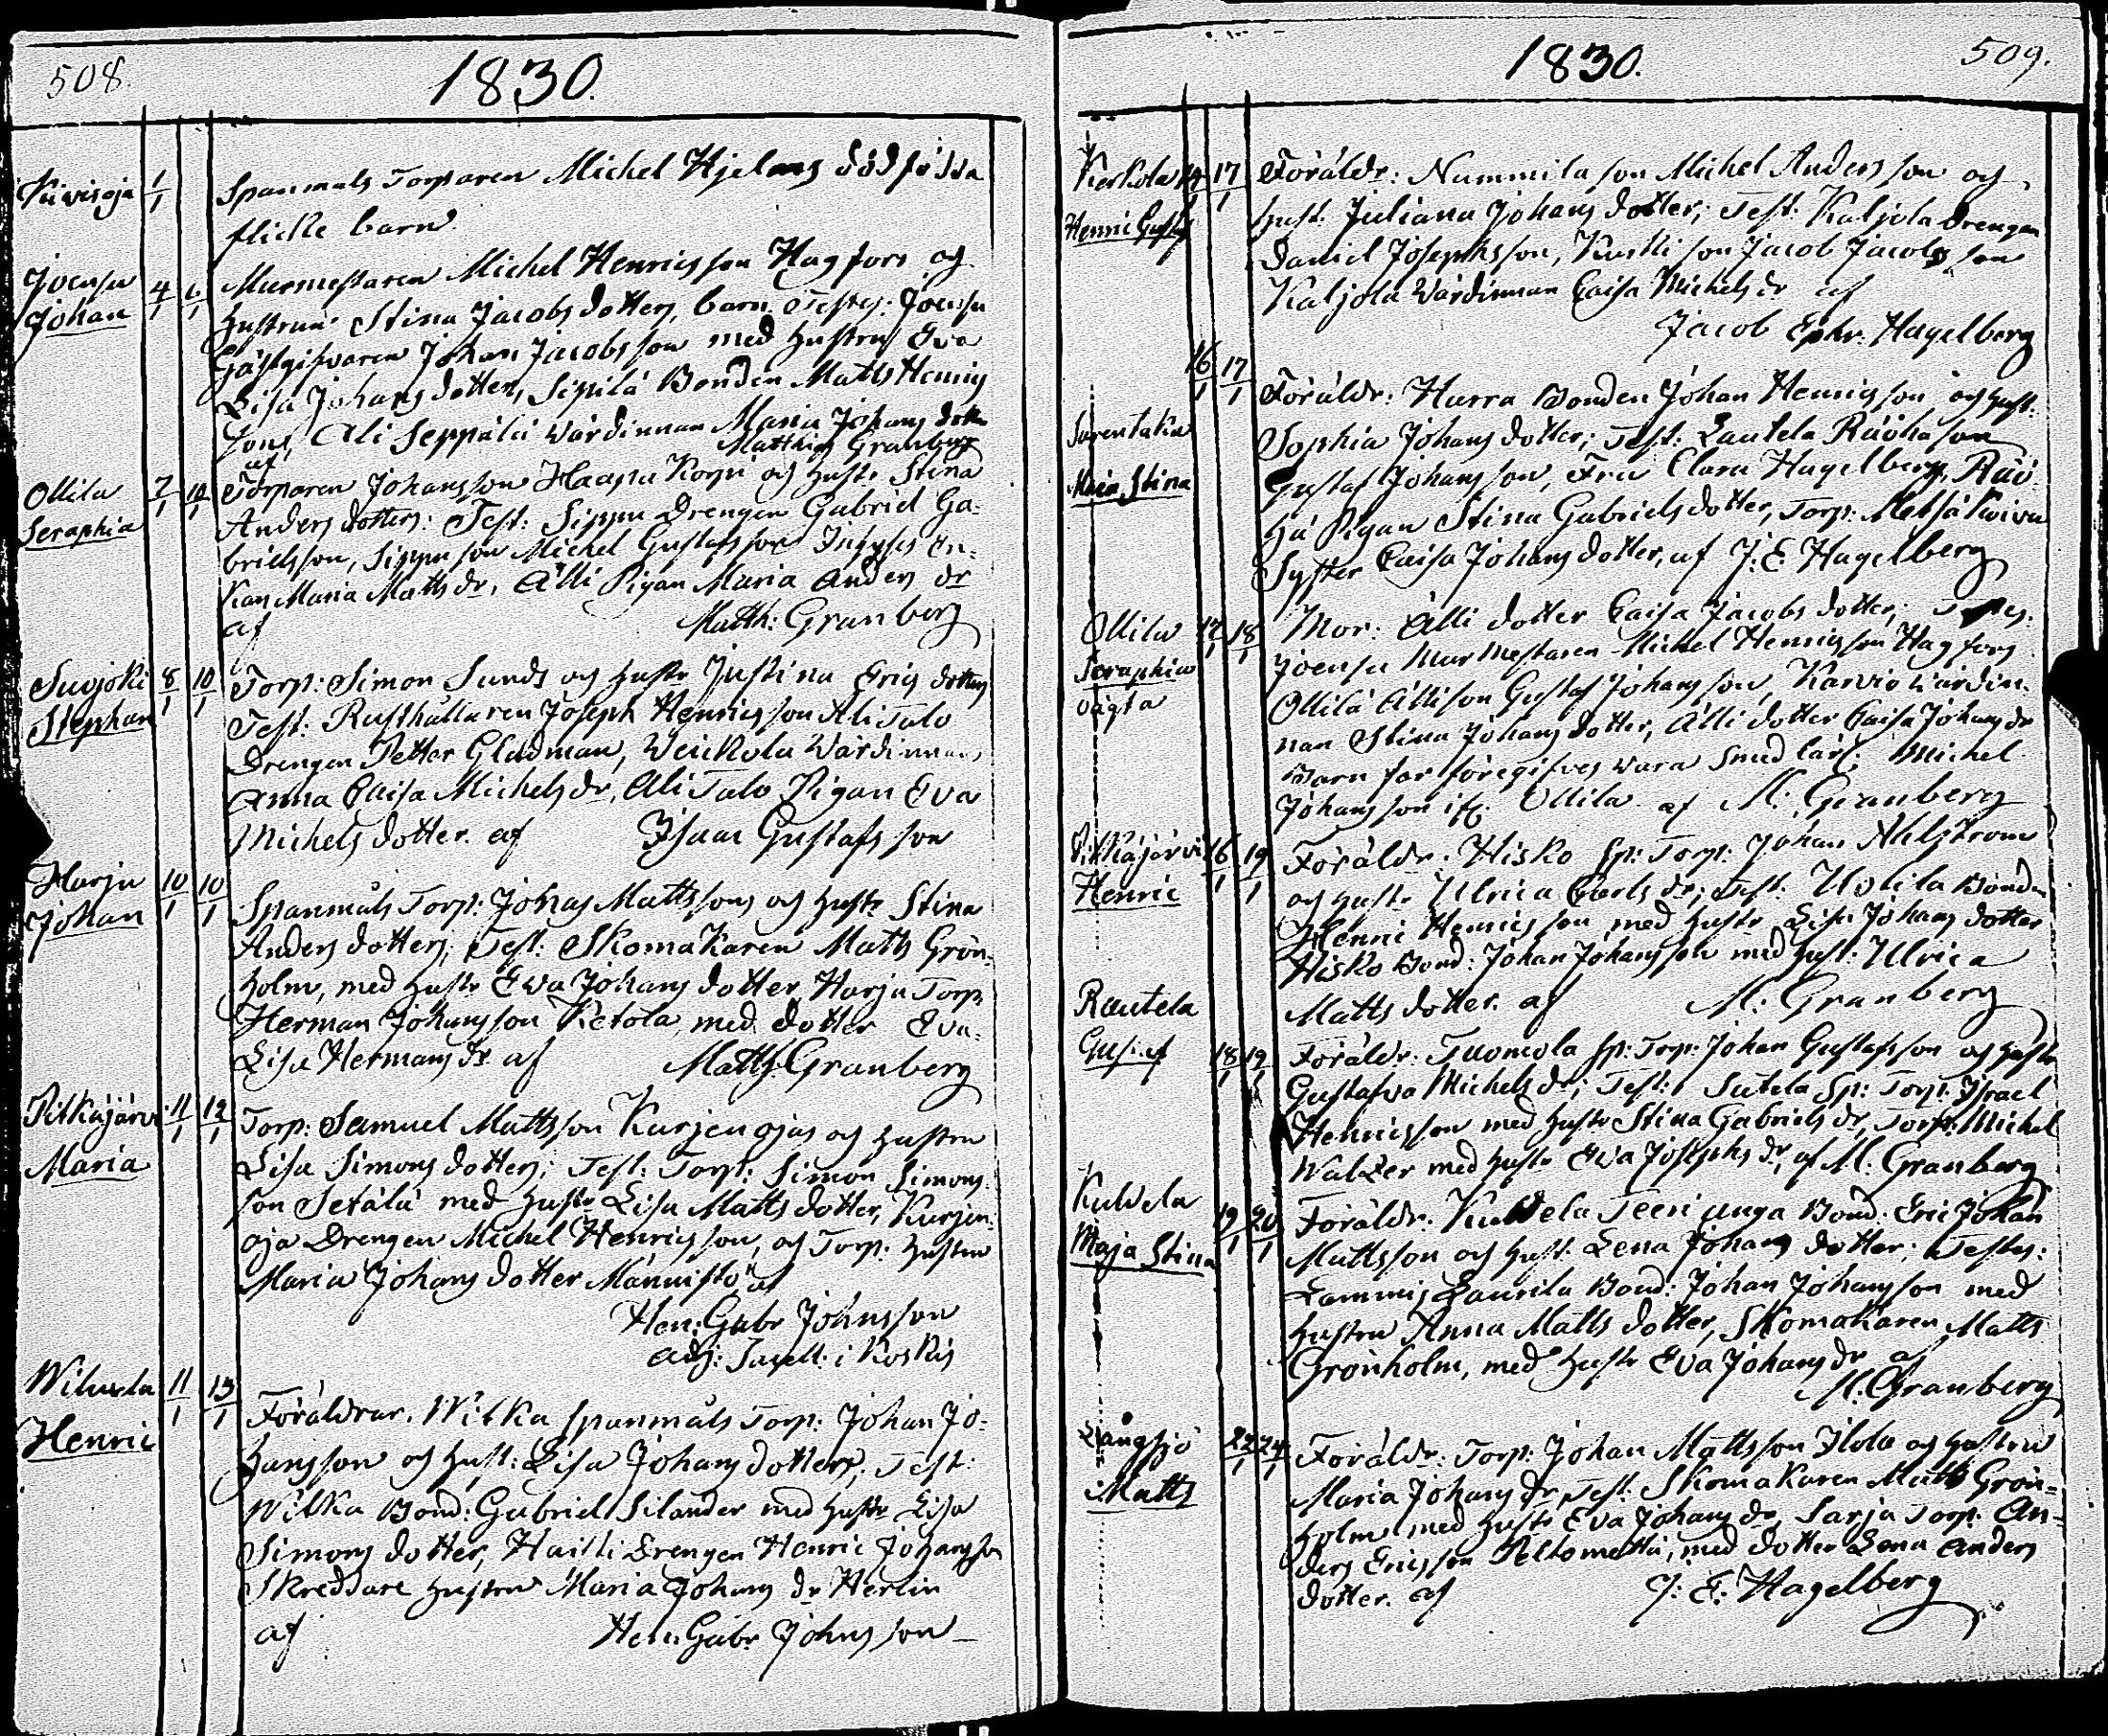 508.
1830.
Kivioja 1/1 Spanmåls Torparen Michel Hjelms dödfödda
flicke barn.
Joensu
Johan 4/1 6/1 Murmestaren Michel Henricsson Hagfors og
hustrun Stina Jacobs dotters, barn. Testes: Joensu
Gästgifvaren Johan Jacobsson med hustru Eva
Lisa Johans dotter, Sipilä Bonden Matts Henrics
son, Ali Seppälä Värdinnan Maria Johans dotter
af Matthias Granberg
Ollila
Seraphia 7/1 10/1 Torparen Johansson Haapa Korpi og hustr Stina
Anders dotters: Test: Sippu Drengen Gabriel Ga-
brielsson, Sippu son Michel Gustafsson Inhyses En-
kan Maria Matts dr, Älli Pigan Maria Anders dr
af Matth: Granberg
Suojoki
Stephan 8/1 10/1 Torp: Simon Sunds og hustr Justina Erics dotters
Test: Rusthållaren Joseph Henricsson Ali Talo
Drengen Petter Gladman, Veickola Värdinnan
Anna Caisa Michels dr, Ali Talo Pigan Eva
Michels dotter. af Isaac Gustafsson
Harju
Johan 10/1 10/1 Spanmåls Torp: Johas Mattssons og hustr Stina
Anders dotters; Test: Skomakaren Matts Grön-
holm, med hustr Eva Johans dotter, Harju Torp.
Herman Johansson Ketola, med dotter Eva
Lisa Hermans dr af Matth: Granberg
Pitkäjärvi
Maria 11/1 12/1 Torp: Samuel Mattsson Kurjenojas og hustru
Lisa Simons dotters; Test: Torp: Simon Simons
son Setälä med hustr Lisa Matts dotter, Kurjen-
oja Drengen Michel Henricsson, og Torp. hustru
Maria Johans dotter Männistö af
Hen: Gabr Johnsson
adj: Sacell: i Koskis
Viluxela
Henric 11/1 13/1 Föräldrar. Wilka spanmåls Torp: Johan Jo-
hansson og hust: Lisa Johans dotters; Test:
Wilka Bond: Gabriel Silander med hustr Lisa
Simons dotter, Haitti Drengen Henric Johansson
Skreddare hustru Maria Johans dr Herlin
af Hen: Gabr Johnsson
1830.
509.
Kerkola
Henric Gustaf 14/1 17/1 Föräldr: Nummila son Michel Andersson og
hust: Juliana Johans dotter; Test: Kaljola Drengen
Daniel Josephsson, Kurki son Jacob Jacobsson
Kaljola Värdinnan Caisa Michels dr af
Jacob Ephr. Hagelberg
Maja Stina 16/1 17/1 Föräldr: Harra Bonden Johan Henricsson og hust:
Sophia Johans dotter; Test: Lautela Räöhä son
Gustaf Johansson, Fru Clara Hagelberg, Räö-
hä Pigan Stina Gabriels dotter, Torp: Metsäkivi
Syster Caisa Johans dotter, af J: E: Hagelberg
Ollila
Seraphia
oägta 17/1 18/1 Mor: Älli dotter Caisa Jacobs dotter; Testes.
Joensu Murmestaren Michel Henricsson Hagfors
Ollila Älli son Gustaf Johansson, Karvio Värdin-
nan Stina Johans dotter, Älli dotter Caisa Johans dr
Barn far föregifves vara Smed lärl: Michel
Johansson ifr. Ollila. af M: Granberg
Pitkäjärvi
Henric 16/1 19/1 Föräldr. Hisko Sp: Torp: Johan Ahlström
og hustr Ulrica Carls dr; Test: Uotila Bonden
Henric Henricsson med hustr Lisa Johans dotter
Hisko Bond: Johan Johansson med hust: Ulrica
Matts dotter. af M: Granberg
Rautela
Gustaf 18/1 19/1 Föräldr: Tuomola Sp: Torp: Johan Gustafsson og hustr
Gustafva Michels dr; Test: Sutela Sp: Torp: Israel
Henricsson med hustr Stina Gabriels dr, Torp: Michel
Walzer med hustr Eva Josephs dr, af M: Granberg
Kuldela
Maja Stina 19/1 20/1 Föräldr. Kuldela Teeri unga Bond: Eric Johan
Mattsson og hust: Lena Johans dotter: Testes:
Lammis Laurila Bond: Johan Johansson med
hustru Anna Matts dotter, Skomakaren Matts
Grönholm, med hustr Eva Johans dr af
M: Granberg
Långsjö
Matts 22/1 24/1 Föräldr: Torp: Johan Mattsson Ilola og hustru
Maria Johans dr, Test: Skomakaren Matts Grön-
holm med hustr Eva Johans dr, Sarja Torp. An-
ders Ericsson Peltomettä, med dotter Lena Anders
dotter. af J: E: Hagelberg